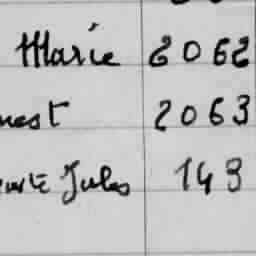 Marie 2062
nest 2063
Jules 143